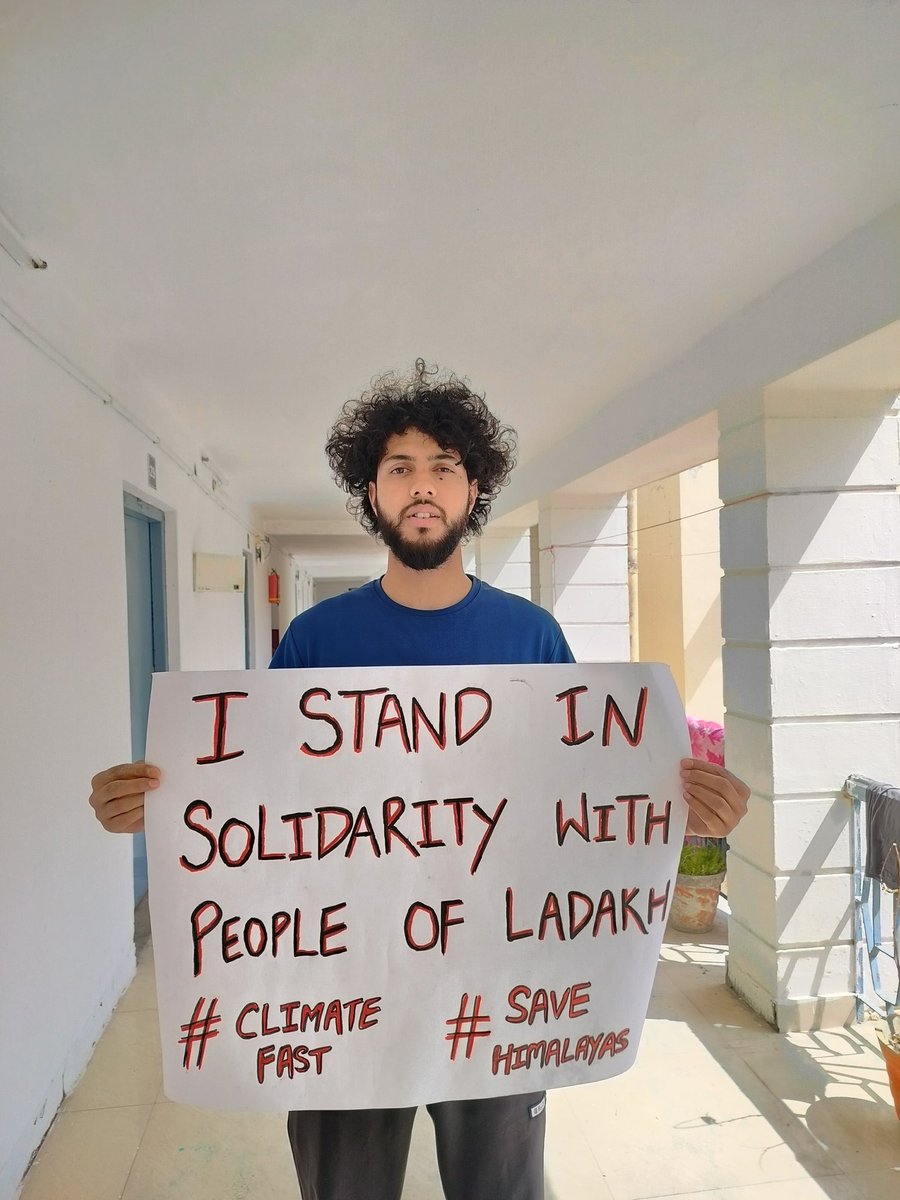 I STAND IN
SOLIDARITY WITH
PEOPLE OF LADAKH
# CLIMATE FAST
# SAVE HIMALAYAS